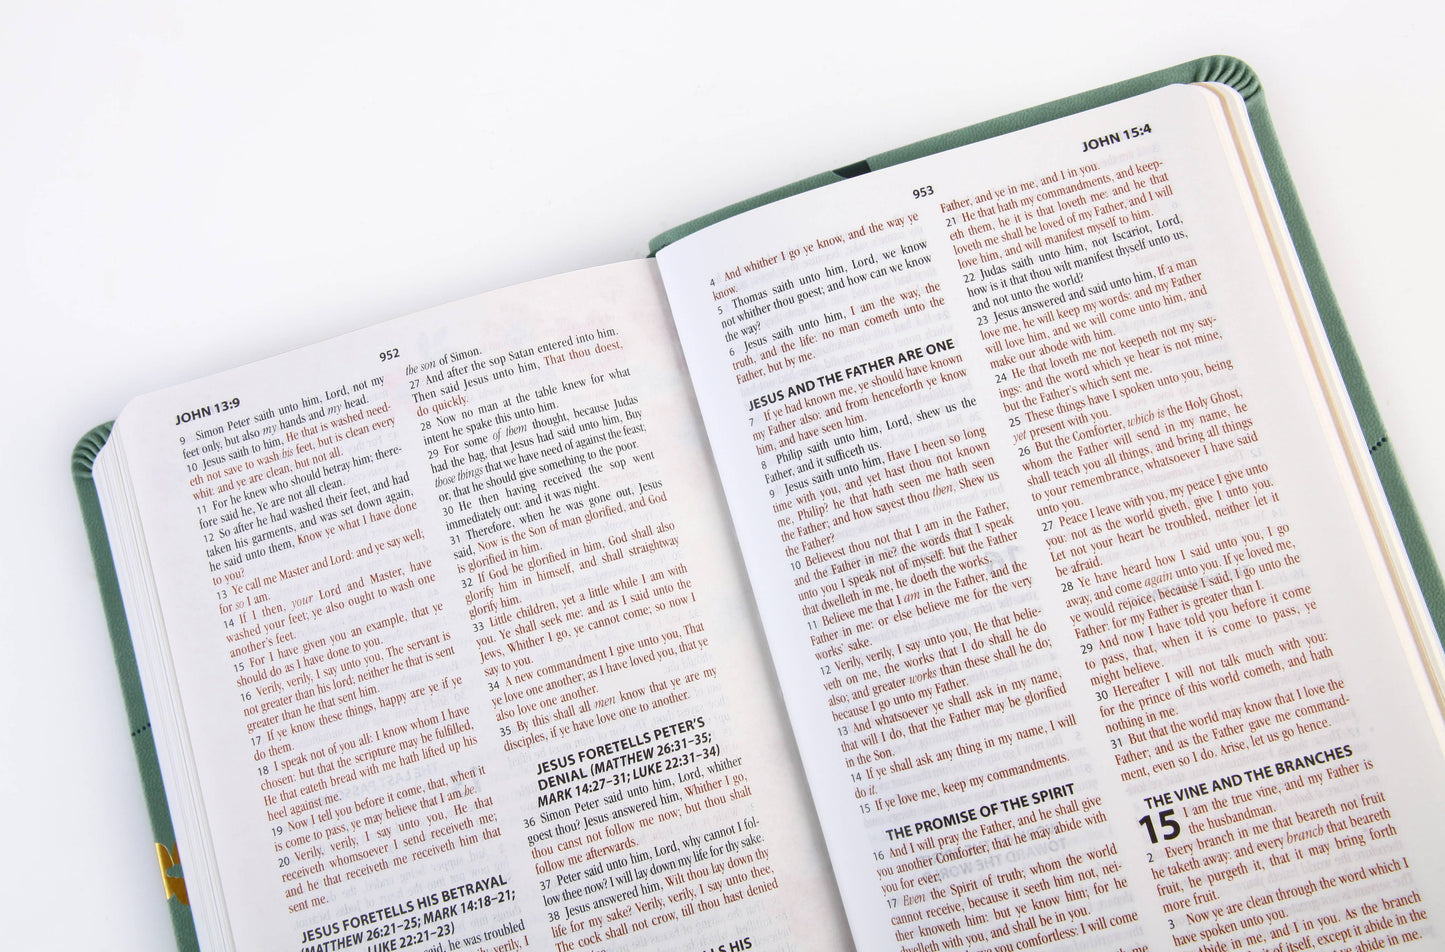 JOHN 13:9
952
9 Simon Peter saith unto him, Lord, not my
feet only, but also my hands and my head.
10 Jesus saith to him, He that is washed need-
eth not save to wash his feet, but is clean every
whit: and ye are clean, but not all.
11 For he knew who should betray him; there-
fore said he, Ye are not all clean.
12 So after he had washed their feet, and had
taken his garments, and was set down again,
he said unto them, Know ye what I have done
to you?
13 Ye call me Master and Lord: and ye say well;
for so I am.
14 If I then, your Lord and Master, have
washed your feet; ye also ought to wash one
another's feet.
15 For I have given you an example, that ye
should do as I have done to you.
16 Verily, verily, I say unto you, The servant is
not greater than his lord; neither he that is sent
greater than he that sent him.
17 If ye know these things, happy are ye if ye
do them.
18 I speak not of you all: I know whom I have
chosen: but that the scripture may be fulfilled,
He that eateth bread with me hath lifted up his
heel against me.
19 Now I tell you before it come, that, when it
is come to pass, ye may believe that I am he.
20 Verily, verily, I say unto you, He that
receiveth whomsoever I send receiveth me;
and he that receiveth me receiveth him that
sent me.
JESUS FORETELLS HIS BETRAYAL
(MATTHEW 26:21–25; MARK 14:18–21;
LUKE 22:21–23)
said, he was troubled
verily, I
the son of Simon.
27 And after the sop Satan entered into him.
Then said Jesus unto him, That thou doest,
do quickly.
28 Now no man at the table knew for what
intent he spake this unto him.
29 For some of them thought, because Judas
had the bag, that Jesus had said unto him, Buy
those things that we have need of against the feast;
or, that he should give something to the poor.
30 He then having received the sop went
immediately out: and it was night.
31 Therefore, when he was gone out, Jesus
said, Now is the Son of man glorified, and God
is glorified in him.
32 If God be glorified in him, God shall also
glorify him in himself, and shall straightway
glorify him.
33 Little children, yet a little while I am with
you. Ye shall seek me: and as I said unto the
Jews, Whither I go, ye cannot come; so now I
say to you.
34 A new commandment I give unto you, That
ye love one another; as I have loved you, that ye
also love one another.
35 By this shall all men know that ye are my
disciples, if ye have love one to another.
JESUS FORETELLS PETER'S
DENIAL (MATTHEW 26:31–35;
MARK 14:27–31; LUKE 22:31–34)
36 Simon Peter said unto him, Lord, whither
goest thou? Jesus answered him, Whither I go,
thou canst not follow me now; but thou shalt
follow me afterwards.
37 Peter said unto him, Lord, why cannot I fol-
low thee now? I will lay down my life for thy sake.
38 Jesus answered him, Wilt thou lay down thy
life for my sake? Verily, verily, I say unto thee,
The cock shall not crow, till thou hast denied
HIS
953
JOHN 15:4
4 And whither I go ye know, and the way ye
know.
5 Thomas saith unto him, Lord, we know
not whither thou goest; and how can we know
the way?
6 Jesus saith unto him, I am the way, the
truth, and the life: no man cometh unto the
Father, but by me.
JESUS AND THE FATHER ARE ONE
7 If ye had known me, ye should have known
my Father also: and from henceforth ye know
him, and have seen him.
8 Philip saith unto him, Lord, shew us the
Father, and it sufficeth us.
9 Jesus saith unto him, Have I been so long
time with you, and yet hast thou not known
me, Philip? he that hath seen me hath seen
the Father; and how sayest thou then, Shew us
the Father?
10 Believest thou not that I am in the Father,
and the Father in me? the words that I speak
unto you I speak not of myself: but the Father
that dwelleth in me, he doeth the works.
11 Believe me that I am in the Father, and the
Father in me: or else believe me for the very
works' sake.
12 Verily, verily, I say unto you, He that belie-
veth on me, the works that I do shall he do
also; and greater works than these shall he do;
because I go unto my Father.
13 And whatsoever ye shall ask in my name,
that will I do, that the Father may be glorified
in the Son.
14 If ye shall ask any thing in my name, I will
do it.
15 If ye love me, keep my commandments.
THE PROMISE OF THE SPIRIT
16 And I will pray the Father, and he shall give
you another Comforter, that he may abide with
you for ever;
17 Even the Spirit of truth; whom the world
cannot receive, because it seeth him not, nei-
ther knoweth him: but ye know him; for he
dwelleth with you, and shall be in you.
you comfortless: I will come
Father, and ye in me, and I in you.
21 He that hath my commandments, and keep-
eth them, he it is that loveth me: and he that
loveth me shall be loved of my Father, and I will
love him, and will manifest myself to him.
22 Judas saith unto him, not Iscariot, Lord,
how is it that thou wilt manifest thyself unto us,
and not unto the world?
23 Jesus answered and said unto him, If a man
love me, he will keep my words: and my Father
will love him, and we will come unto him, and
make our abode with him.
24 He that loveth me not keepeth not my say-
ings: and the word which ye hear is not mine,
but the Father's which sent me.
25 These things have I spoken unto you, being
yet present with you.
26 But the Comforter, which is the Holy Ghost,
whom the Father will send in my name, he
shall teach you all things, and bring all things
to your remembrance, whatsoever I have said
unto you.
27 Peace I leave with you, my peace I give unto
you: not as the world giveth, give I unto you.
Let not your heart be troubled, neither let it
be afraid.
28 Ye have heard how I said unto you, I go
away, and come again unto you. If ye loved me,
ye would rejoice, because I said, I go unto the
Father: for my Father is greater than I.
29 And now I have told you before it come
to pass, that, when it is come to pass, ye
might believe.
30 Hereafter I will not talk much with you:
for the prince of this world cometh, and hath
nothing in me.
31 But that the world may know that I love the
Father; and as the Father gave me command-
ment, even so I do. Arise, let us go hence.
THE VINE AND THE BRANCHES
15 I am the true vine, and my Father is
the husbandman.
2 Every branch in me that beareth not fruit
he taketh away: and every branch that beareth
fruit, he purgeth it, that it may bring forth
more fruit.
3 Now ye are clean through the word which I
have spoken unto you.
in me, and I in you. As the branch
itself, except it abide in the